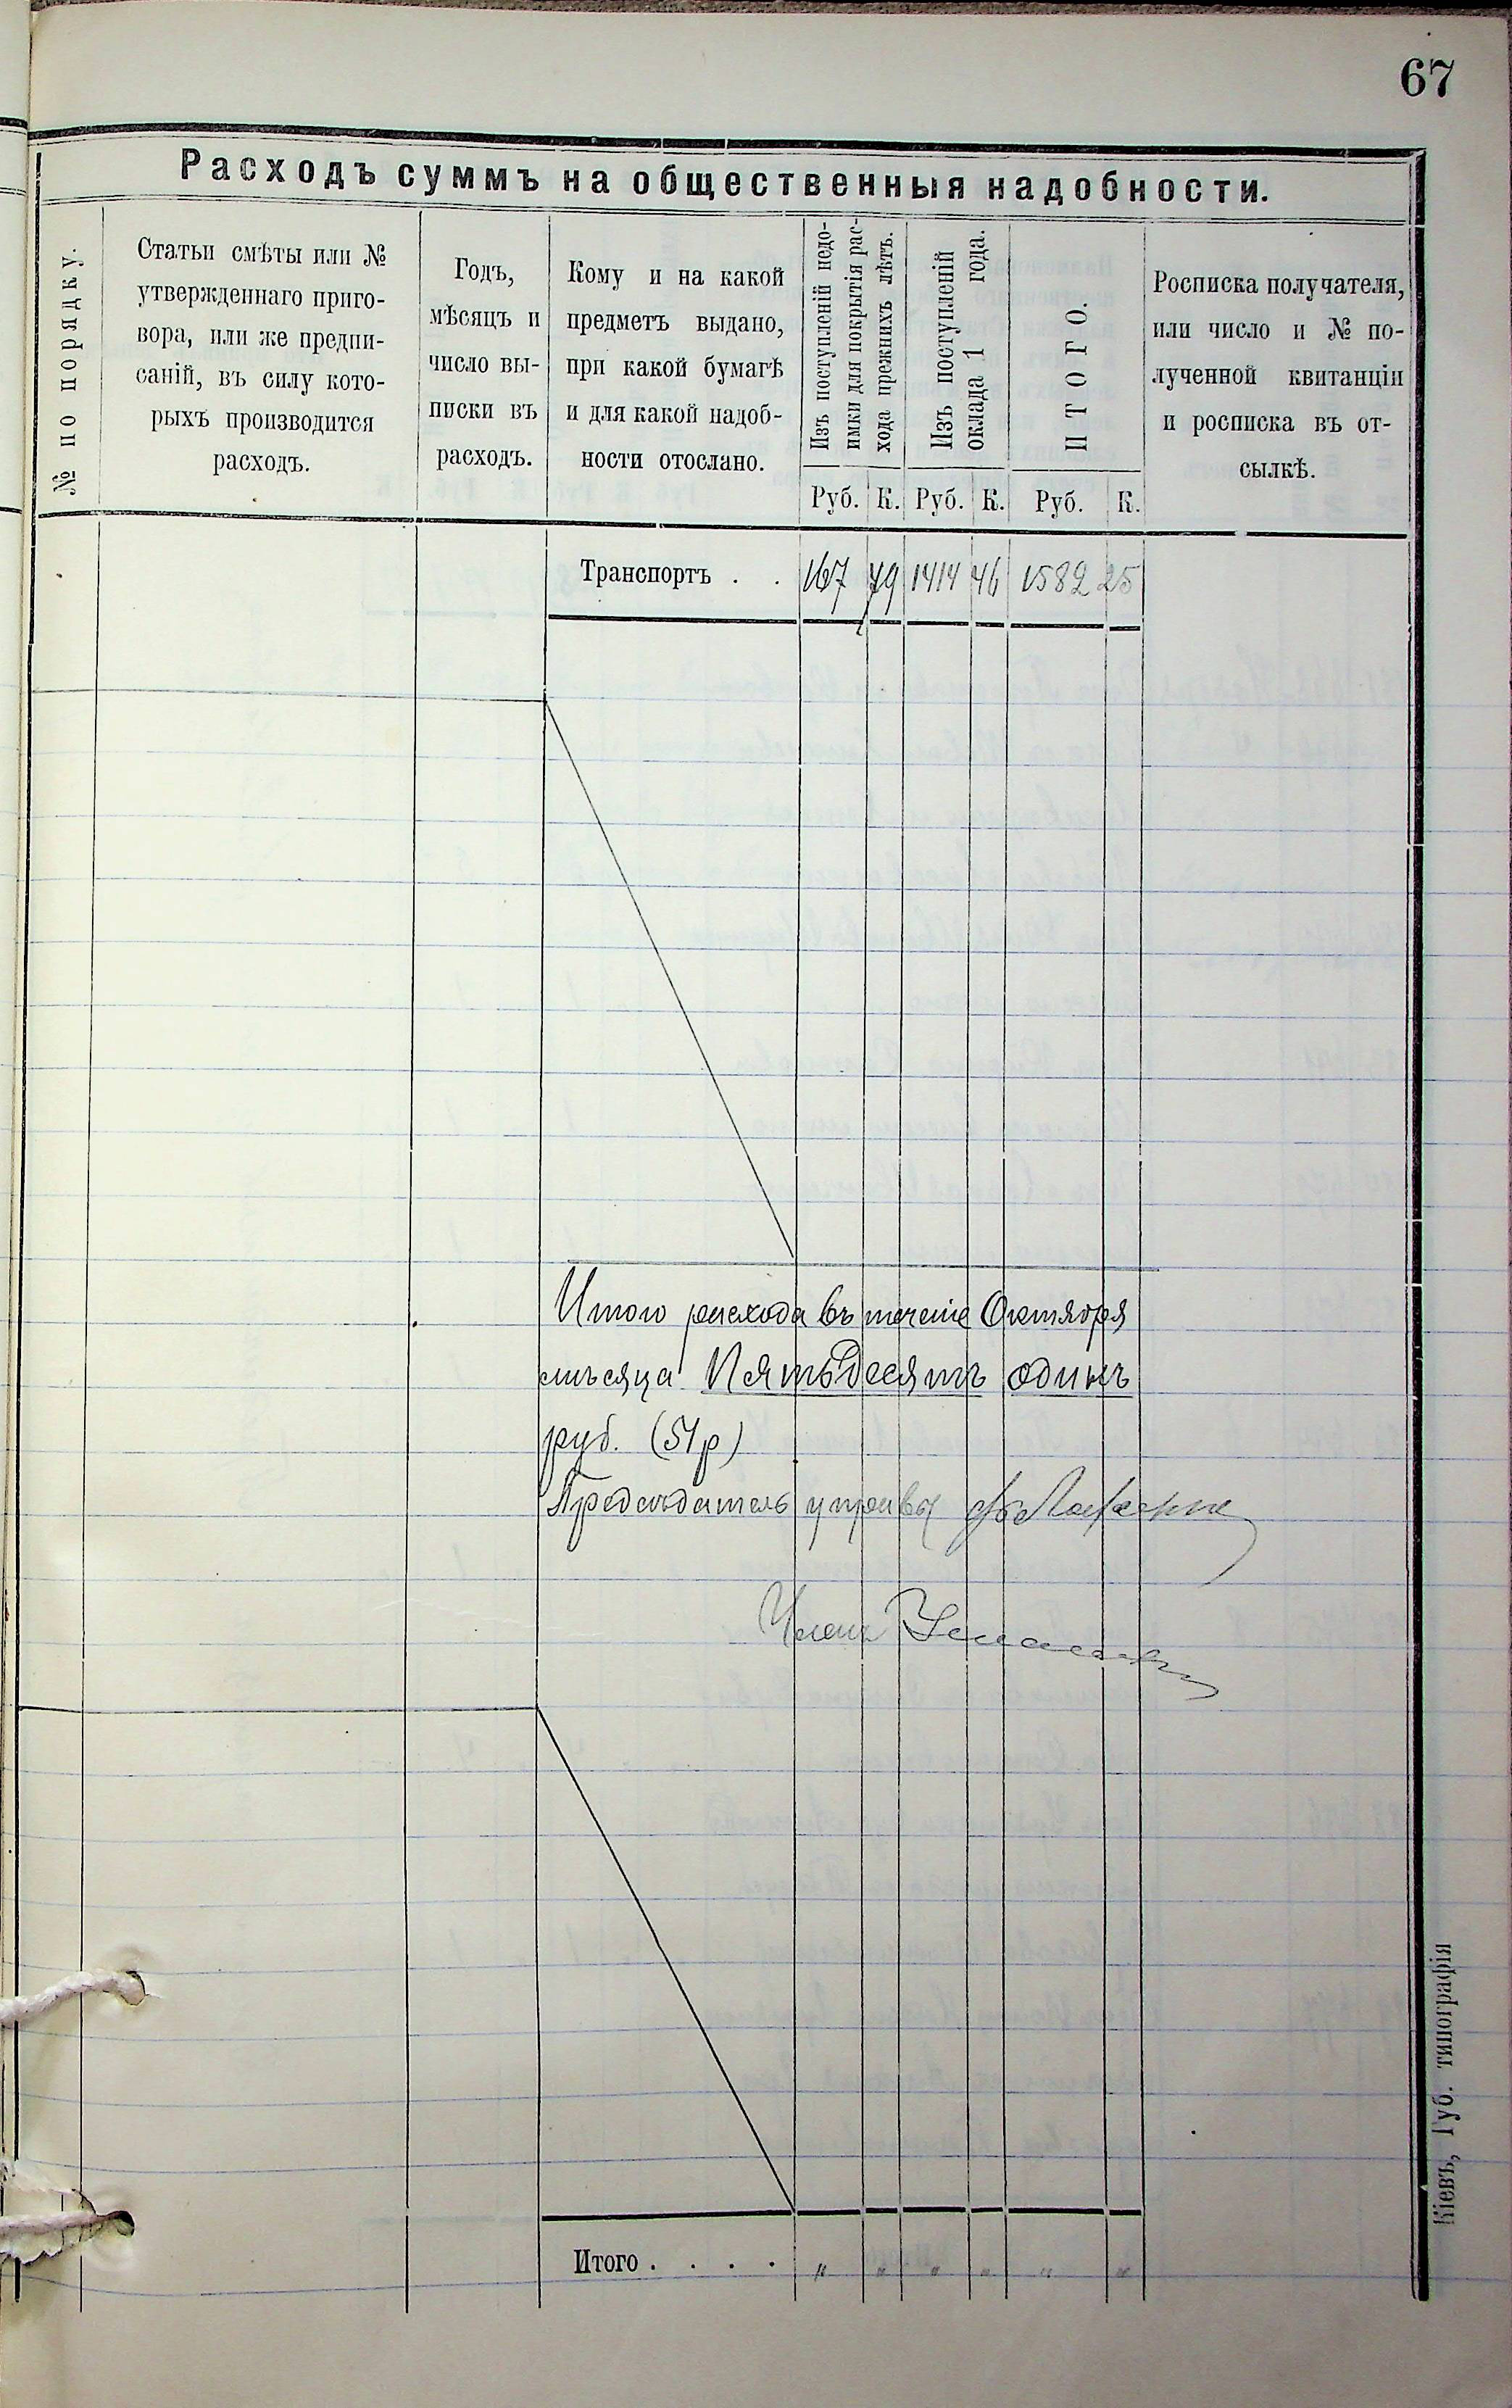 67
Расходъ суммъ на общественныя надобности.
№ по порядку.
Статьи смѣты или №
утвержденнаго приго-
вора, или же предпи-
саній, въ силу кото-
рыхъ производится
расходъ.
Годъ,
мѣсяцъ и
число вы-
писки въ
расходъ.
Кому и на какой
предметъ выдано,
при какой бумагѣ
и для какой надоб-
ности отослано.
Изъ поступленій недо-
имки для покрытія рас-
хода прежнихъ лѣтъ.
Изъ поступленій
оклада 1 года.
ИТОГО.
Росписка получателя,
или число и № по-
лученной квитанціи
и росписка въ от-
сылкѣ.
Руб. К. Руб. К. Руб. К.
Транспортъ . . 167 79 1414 46 1582 25
Итого расхода въ теченіе Октября
мѣсяца Пятьдесятъ одинъ
руб. (51 р)
Предсѣдатель управы
Членъ
Итого . . . . „ „ „ „ „ „
Кіевъ, Губ. типографія